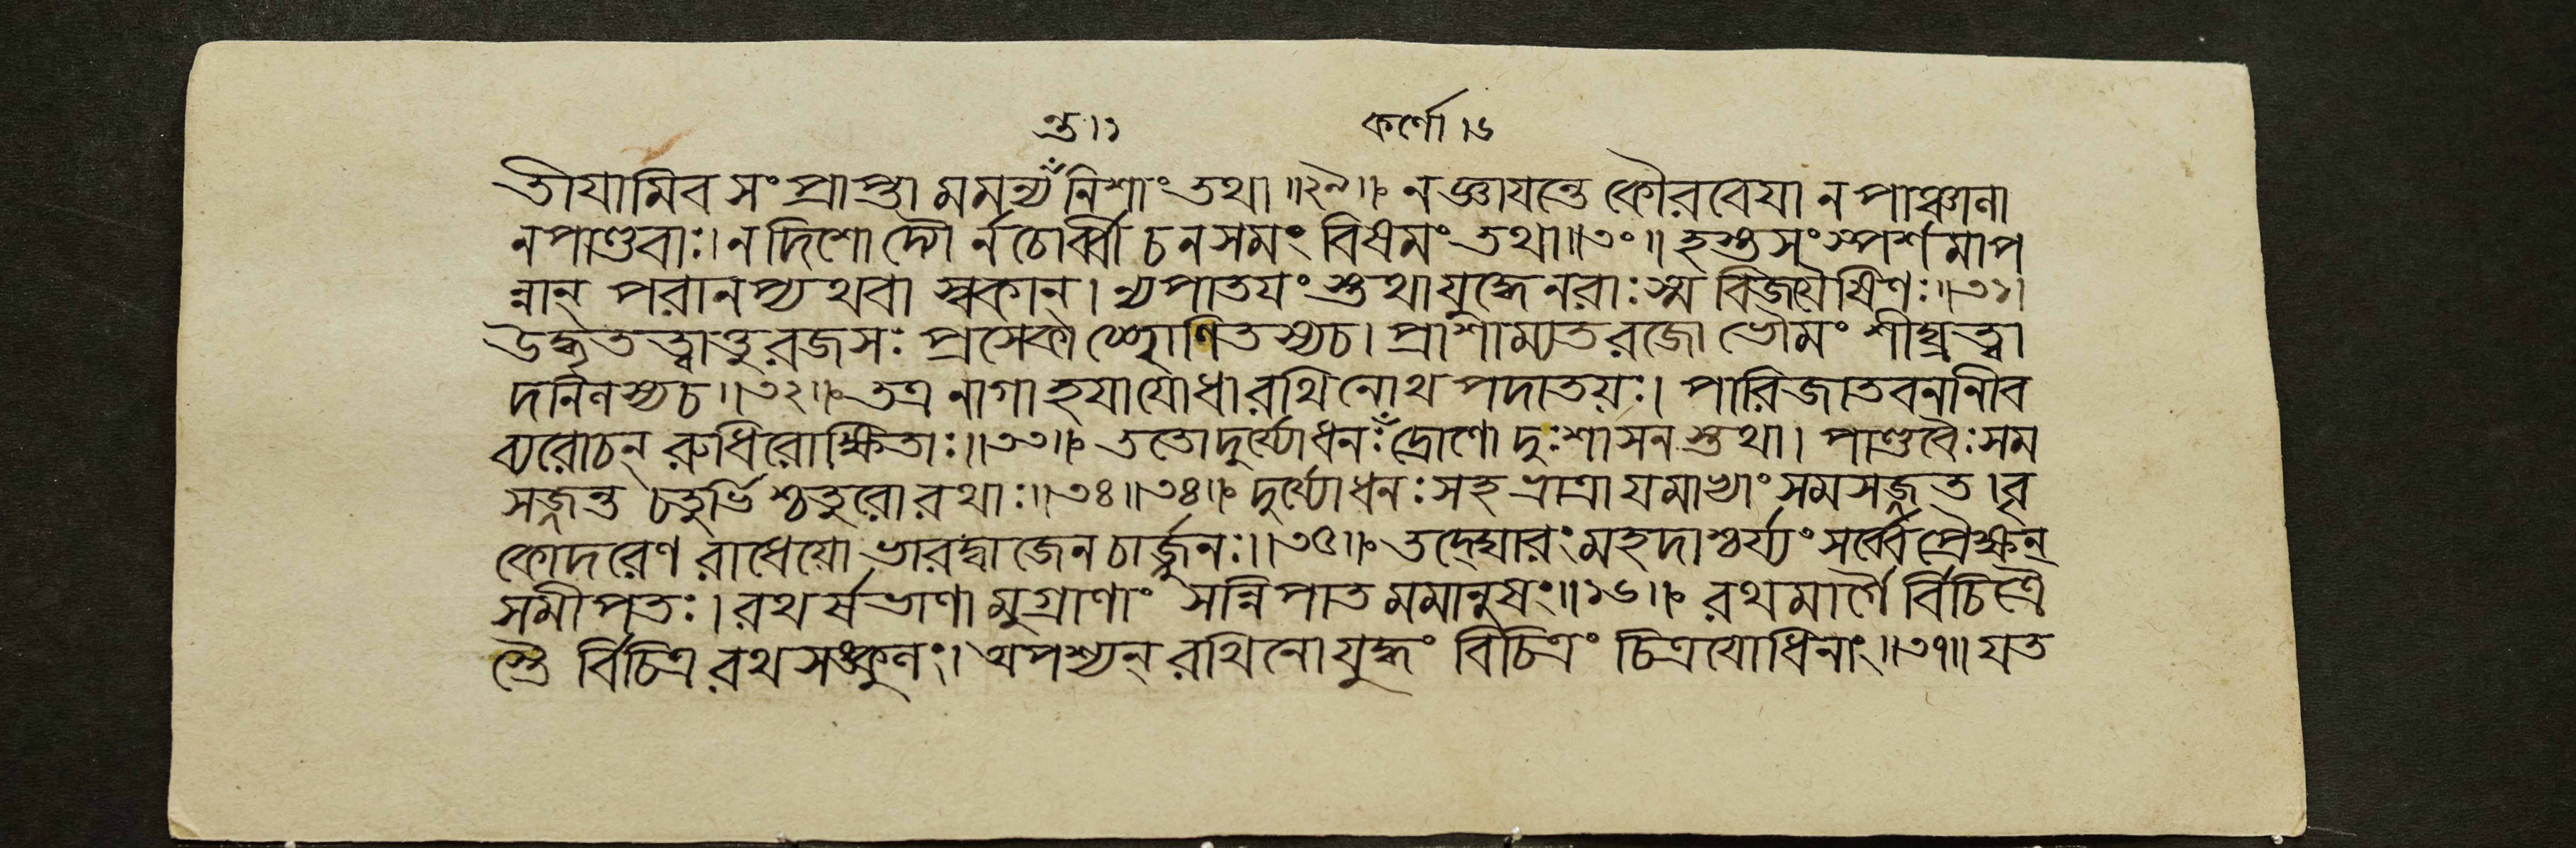 ন্ত ৷১ কর্ণো ৷৬
তীযামিব সংপ্রাপ্তা মমন্যঁ নিশাং তথা ॥২৯॥ ন জ্ঞাযন্তে কৌরবেযা ন পাঞ্চানা
ন পাণ্ডবাঃ। ন দিশো দ্যৌ র্ন চোর্ব্বী চ ন সমং বিষমং তথা॥৩০॥ হস্তসংস্পর্শমাপ
ন্নান্ পরানপ্যথবা স্বকান্। ন্যপাতযংস্তথা যুদ্ধে নরাঃ স্ম বিজযৈষিণঃ॥৩১।
উদ্ধূতত্ত্বাত্তু রজসঃ প্রসেকাচ্ছোণিতস্য চ। প্রাশাম্যত রজো ভৌমং শীঘ্রত্বা
দনিনস্য চ॥৩২॥ তত্র নাগা হযা যোধা রথিনোথ পদাতয়ঃ। পারিজাতবনানীব
ব্যরোচন্ রুধিরোক্ষিতাঃ॥৩৩॥ ততো দুর্য্যোধনঃঁ দ্রোণো দুঃশাসনস্তথা। পাণ্ডবৈঃ সম
সজ্জন্ত চতুর্ভিশ্চতুরো রথাঃ॥৩৪॥৩৪॥ দুর্য্যোধনঃ সহ ভ্রাত্রা যমাভ্যাং সমসজ্জত। বৃ
কোদরেণ রাধেয়ো ভারদ্বাজেন চার্জ্জুনঃ॥৩৫॥ তদ্ঘোরং মহদাশ্চর্য্যং সর্ব্বে প্রৈক্ষন্
সমীপতঃ। রথর্ষভাণামুগ্রাণাং সন্নিপাতমমানুষং॥১৬॥ রথমার্গৈ র্বিচিত্রৈ
স্তৈ র্বিচিত্ররথসঙ্কুনং। অপশ্যন্ রথিনো যুদ্ধং বিচিত্রং চিত্রযোধিনাং॥৩৭॥ যত